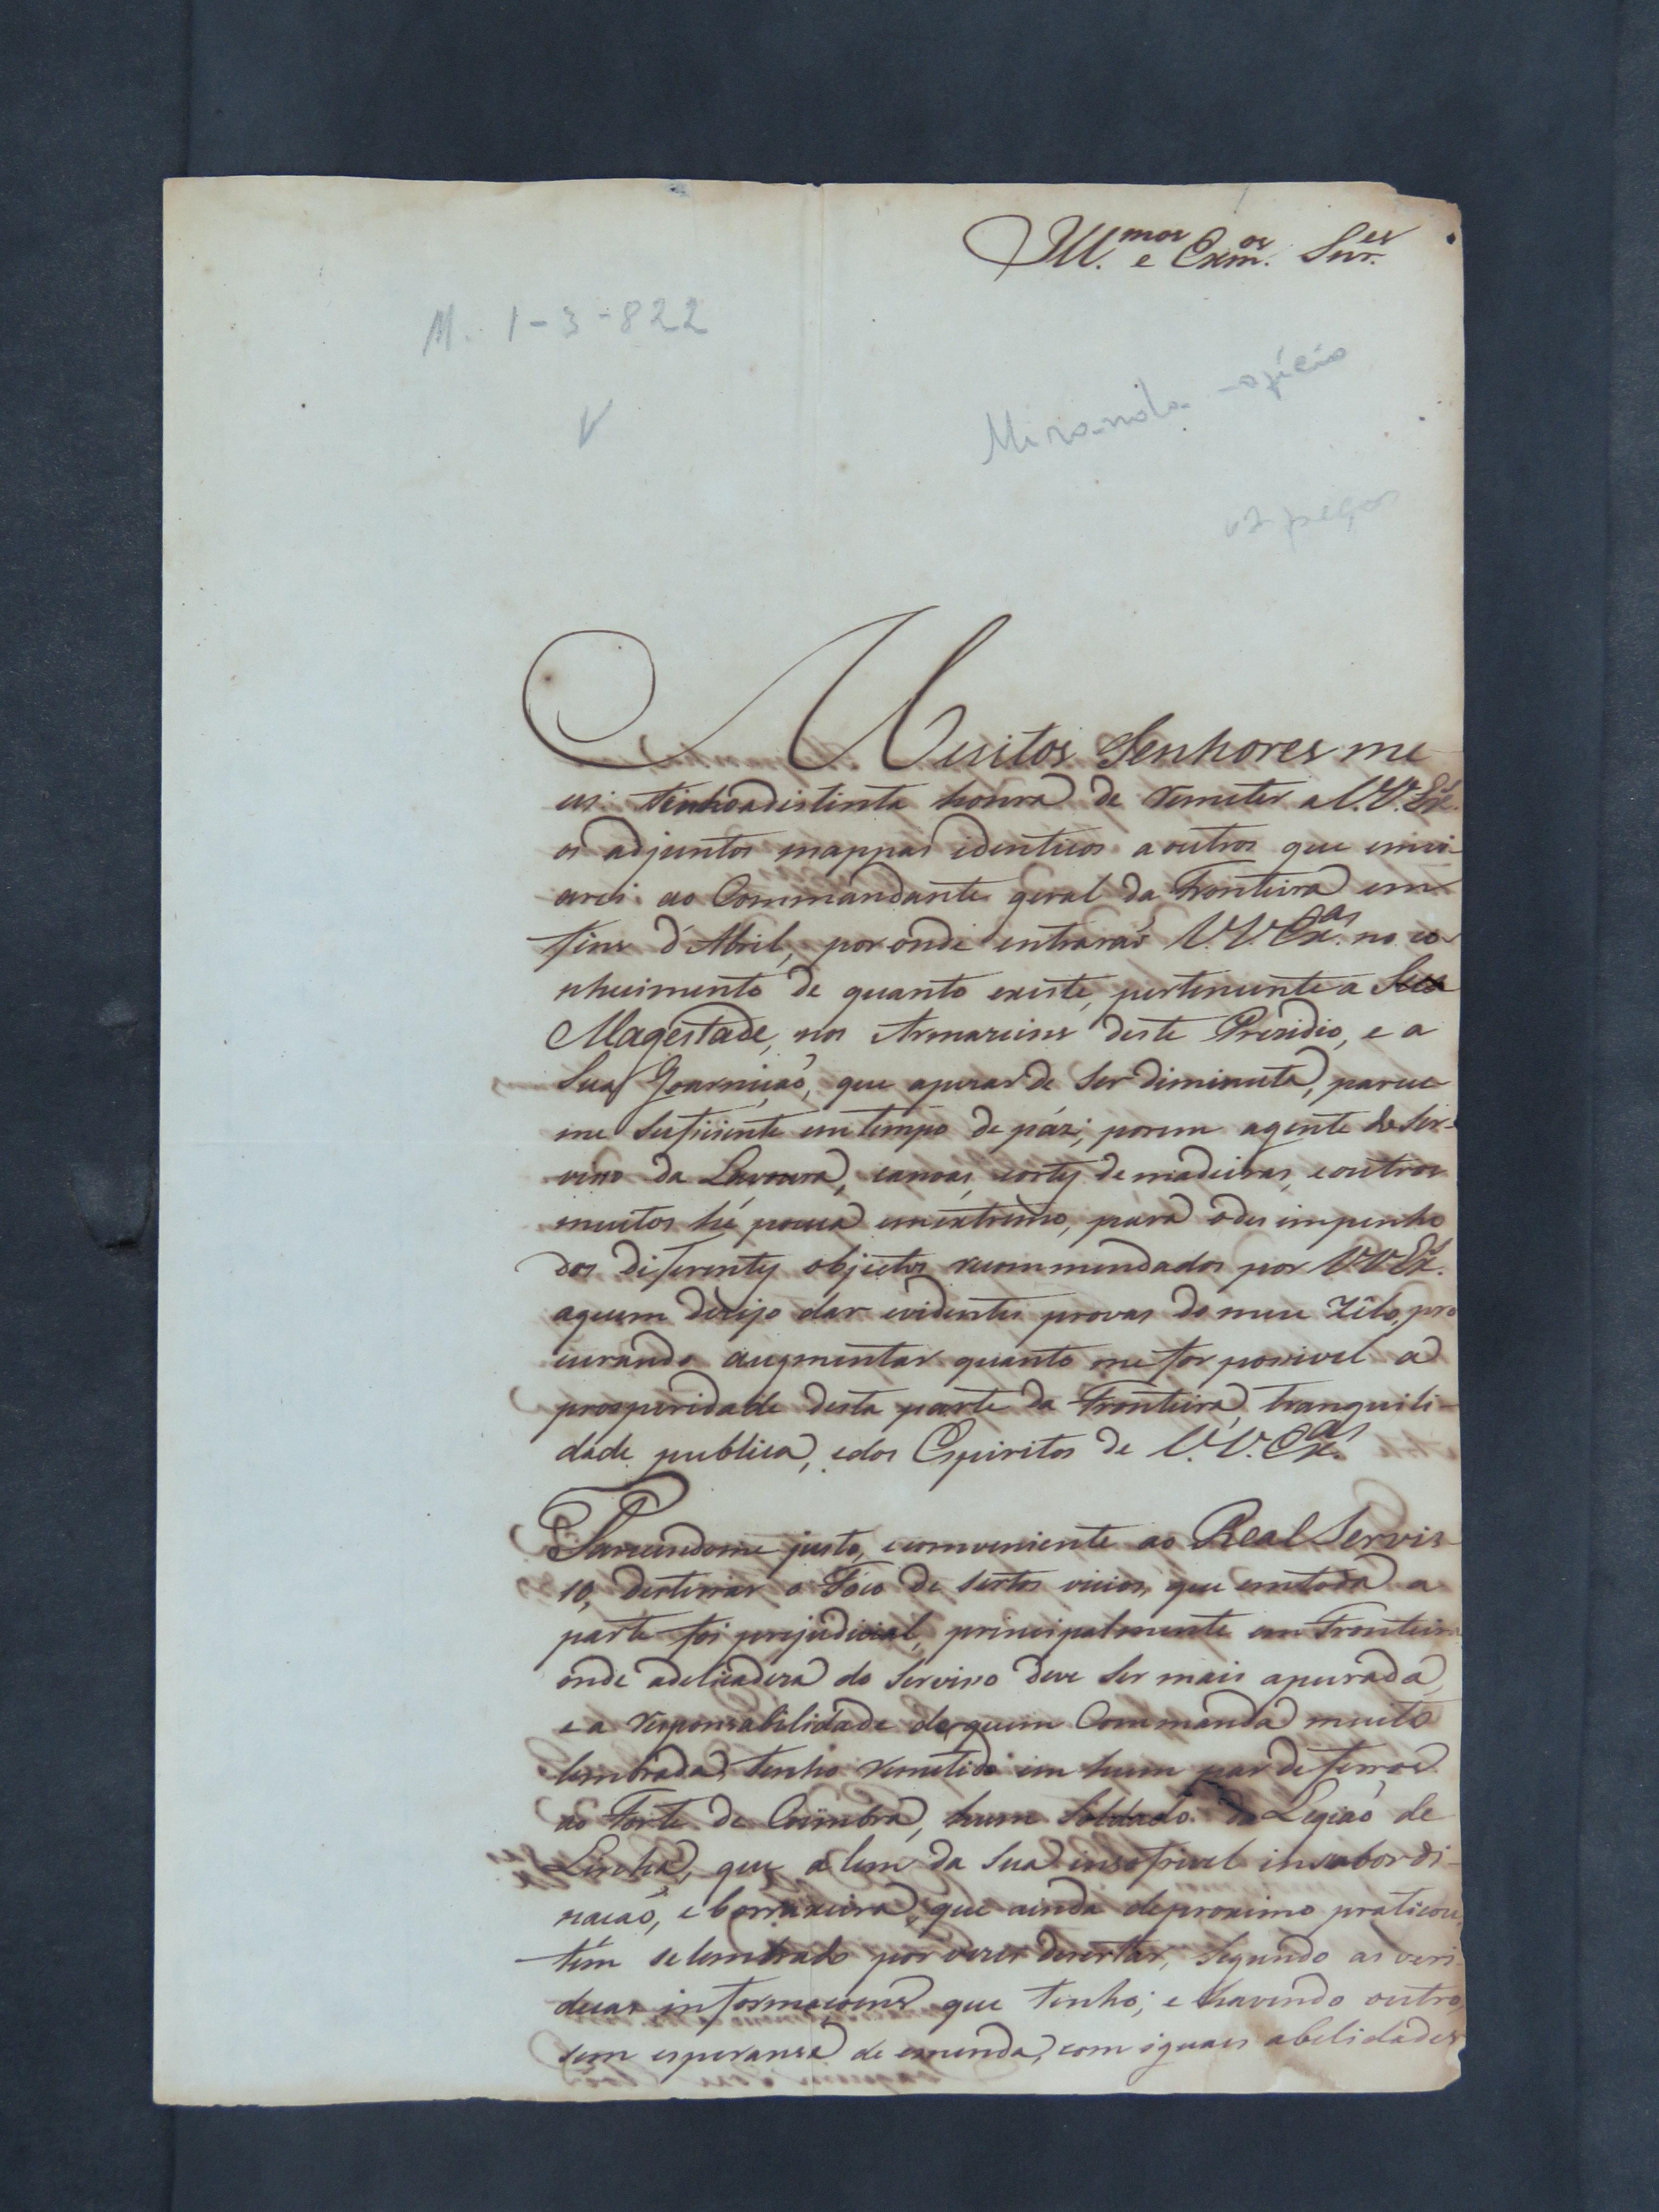 Ill.mos e Exm.os Snr.es
M. 1-3-822
Miranda - oficio
V
02 peças
Muitos Senhores me
us: tenho a distinta honra de remeter a V.V. Ex.
os adjuntos mappas identicos a outros que invi
arei ao Commandante geral da Fronteira em
fins d'Abril, por onde entraráõ V.V. Ex.as no co
nhecimento de quanto existe, pertencente a Sua
Magestade, nos Armazeins deste Prezidio, e a
Sua Goarnição, que apezar de ser diminuta, parece
me suficiente em tempo de páz; porem agente de Ser-
viso da Lavoura, canoas, cortes de madeiras, e outros
muitos hé pouca em extremo, para o des impenho
dos diferentes objectos recommendados por V.V. Ex.
aquem dezejo dar evidentes provas do meu Zêlo, pro
curando augmentar quanto me for possivel a
prosperidade desta parte da Fronteira, tranquili-
dade publica, e dos Espiritos de V.V. Ex.as
Parecendome justo, e conveniente ao Real Servis
so, desterrar o Fóco de sertos vicios, que em toda a
parte foi prejudicial, principalmente em Fronteira
onde adelicadeza do Serviso deve ser mais apurada,
e a responsabilidade de quem Commanda muito
lembrada, tenho remetido em hum par de ferros
ao Forte de Coimbra, hum Soldado da Legiaõ de
Linha, que a lem da Sua insofrivel insubordi-
nação, e borraxeira, que ainda deproximo praticou,
tem se lembrado por vezes dezertar, segundo as veri
dicas informaçoens que tenho; e havendo outro,
sem esperansa de emenda, com iguaes abelidades